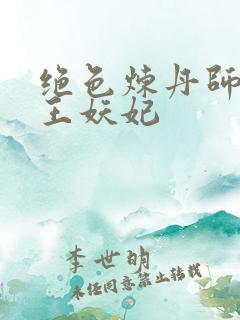 绝色炼丹師
王妖妃
李世明
未经同意禁止转载